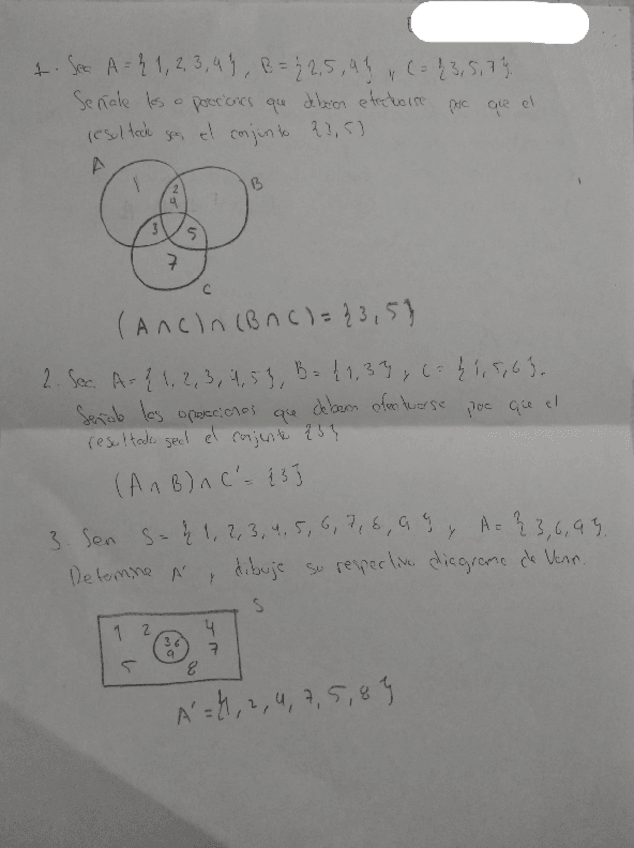 1. Sea A = { 1, 2, 3, 4 }, B = { 2, 5, 4 } y C = { 3, 5, 7 }.
Señale las operaciones que deben efectuarse para que el
resultado sea el conjunto { 3, 5 }
A
1
2
4
B
3
5
7
C
(A∩C)∩(B∩C) = { 3, 5 }
2. Sea A = { 1, 2, 3, 4, 5 }, B = { 1, 3 } y C = { 1, 5, 6 }.
Señale las operaciones que deben efectuarse para que el
resultado sea el conjunto { 3 }
(A∩B)∩C' = { 3 }
3. Sean S = { 1, 2, 3, 4, 5, 6, 7, 8, 9 } y A = { 3, 6, 9 }.
Determine A' y dibuje su respectivo diagrama de Venn.
S
1 2 4
3 6
9 7
5 8
A' = { 1, 2, 4, 7, 5, 8 }